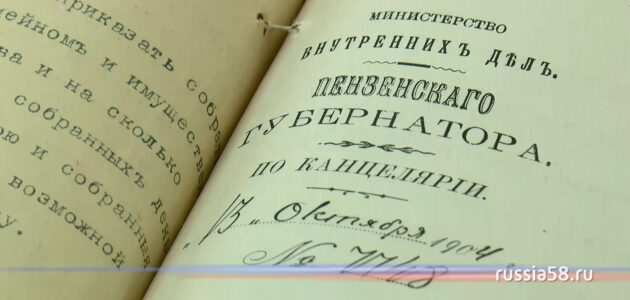 приказать собра
ейномъ и имуществе
ва и на сколько
собранныхъ день
ою и собранныя
возможной
ку.
МИНИСТЕРСТВО
ВНУТРЕННИХЪ ДѢЛЪ.
ПЕНЗЕНСКАГО
ГУБЕРНАТОРА.
ПО КАНЦЕЛЯРІИ.
„13„ Октября 1904
№ 7748
russia58.ru